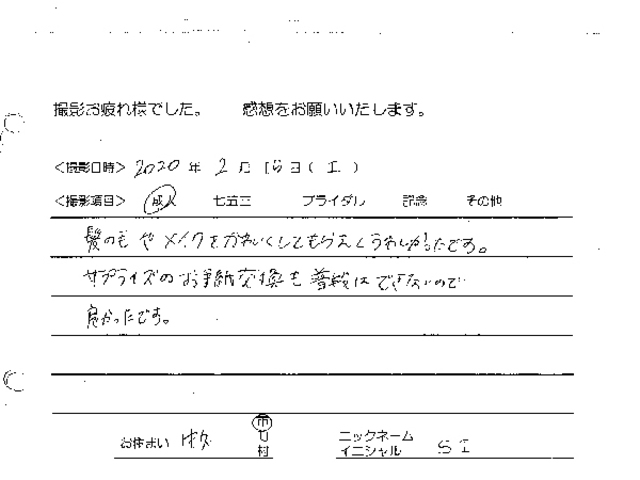 撮影お疲れ様でした。 感想をお願いいたします。
<撮影日時> 2020 年 2 月 15 日 ( 土 )
<撮影項目> 成人 七五三 ブライダル 記念 その他
髪の毛やメイクをかわいくしてもらえてうれしかったです。
サプライズのお手紙交換も普段はできないので
良かったです。
お住まい 市 町 村 ニックネーム
イニシャル S I